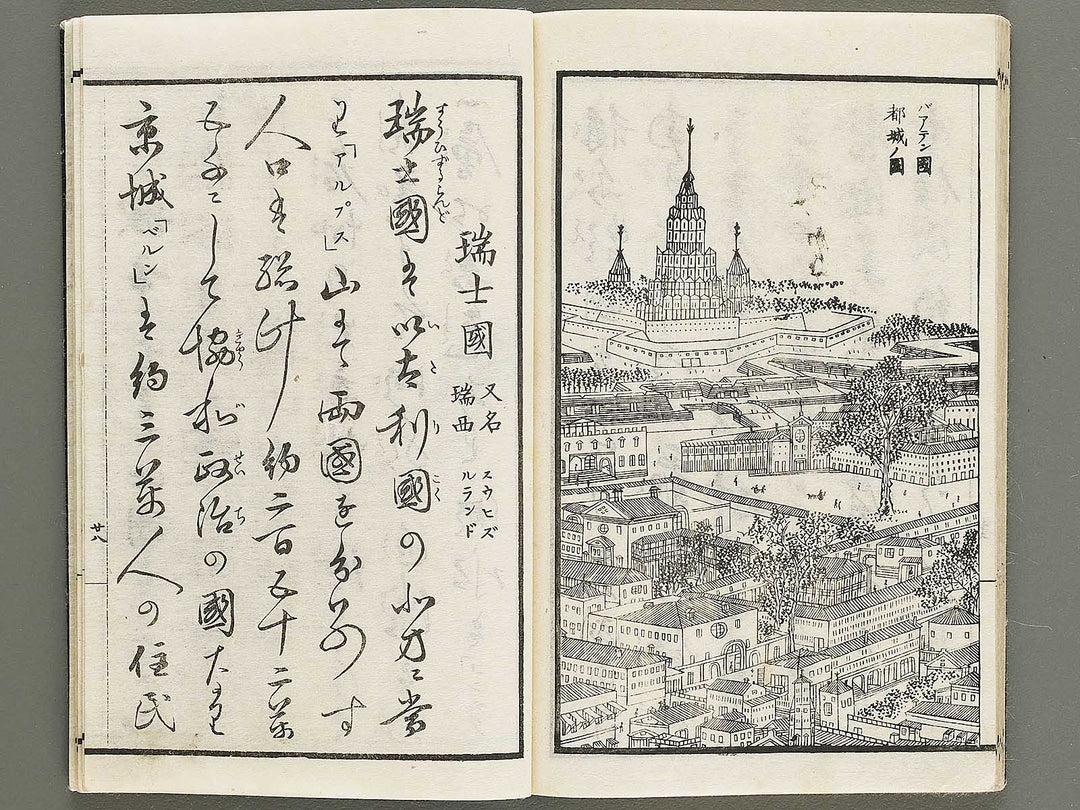 バアテン國
都城ノ圖
瑞士國 又名 瑞西 スウヒズルランド
瑞士國は以太利國の北方に當
り「アルプス」山にて兩國を分界す
人口は総計約二百五十二萬
にして協和政治の國
京城「ベルン」は約三萬人の住民
すうひずらんど
いたりこく
きやうわせいち
廿八